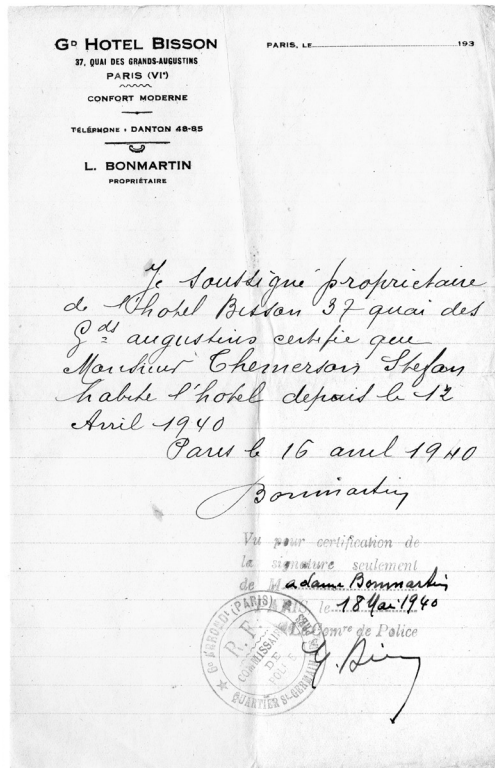 Gᴰ HOTEL BISSON
37, QUAI DES GRANDS-AUGUSTINS
PARIS (VIᵉ)
CONFORT MODERNE
TÉLÉPHONE : DANTON 48-85
L. BONMARTIN
PROPRIÉTAIRE
PARIS, LE 193
Je soussigné propriétaire
de l'hotel Bisson 37 quai des
Gds augustins certifie que
Monsieur Themerson Stefan
habite l'hotel depuis le 12
Avril 1940
Paris le 16 avril 1940
Bonmartin
Vu pour certification de
la signature seulement
de Madame Bonmartin
PARIS, le 18 Mai 1940
Le Comre de Police
R. F.
COMMISSARIAT
DE
POLICE
QUARTIER St GERMAIN
ARRONDt (PARIS)